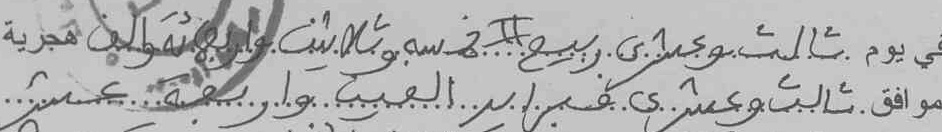 في يوم ثالث وعشرى ربيع II خمسه وثلاثين واربعمئة والف هجرية
موافق ثالث وعشرى فبراير الفين واربعة عشر